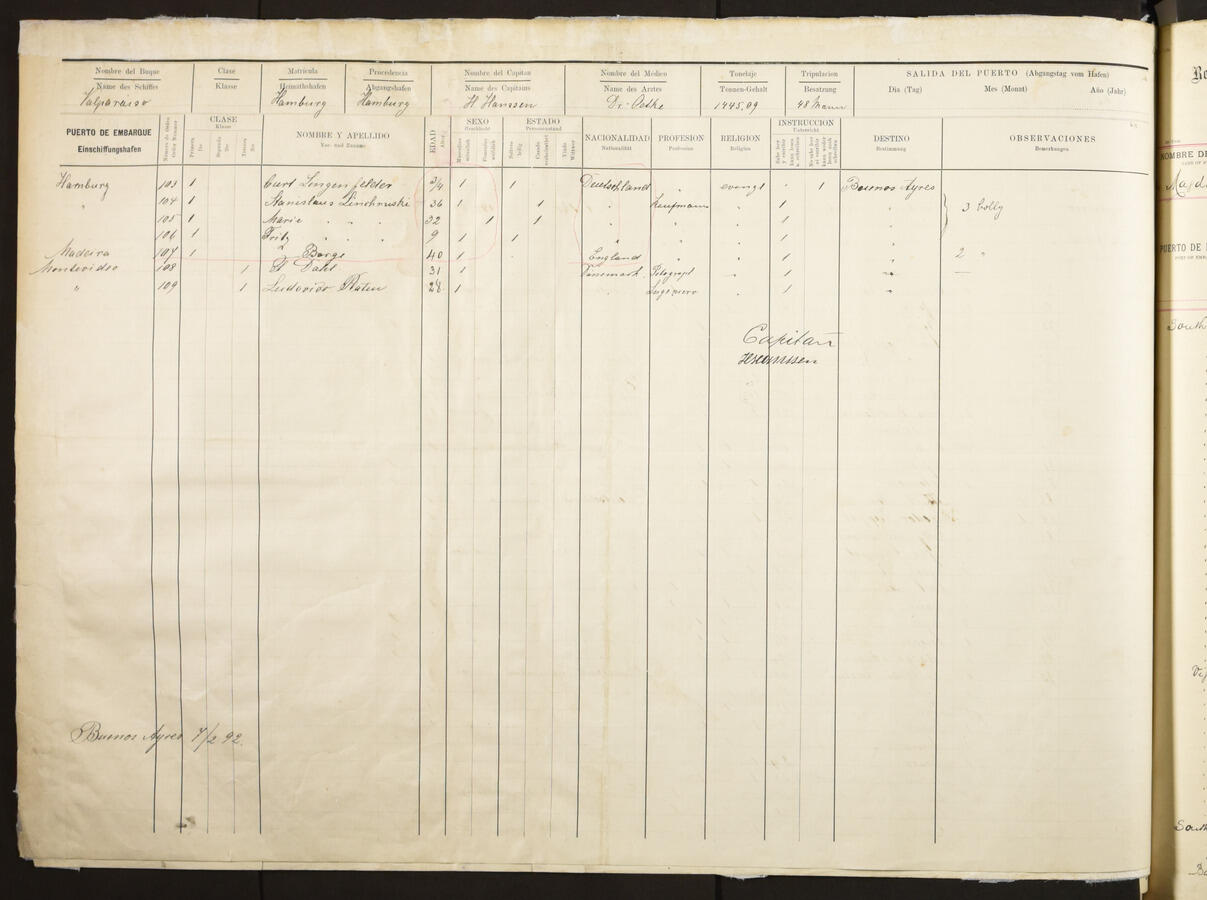 Nombre del Buque Clase Matricula Procedencia Nombre del Capitan Nombre del Médico Tonelaje Tripulacion SALIDA DEL PUERTO (Abgangstag vom Hafen)
Name des Schiffes Klasse Heimathshafen Abgangshafen Name des Capitains Name des Arztes Tonnen-Gehalt Besatzung Dia (Tag) Mes (Monat) Año (Jahr)
Valparaiso Hamburg Hamburg H Hanssen Dr. 1445,09 48 Mann
PUERTO DE EMBARQUE
Einschiffungshafen
Número de Orden
CLASE
Klasse
Primera
Segunda
Tercera
NOMBRE Y APELLIDO
Vor- und Zuname
EDAD
Alter
SEXO
Geschlecht
Masculino männlich
Femenino weiblich
ESTADO
Personenstand
Soltero ledig
Casado verheirathet
Viudo Wittwer
NACIONALIDAD
Nationalität
PROFESION
Profession
RELIGION
Religion
INSTRUCCION
Unterricht
Sabe leer y escribir kann lesen u. schreiben
No sabe leer ni escribir kann weder lesen noch schreiben
DESTINO
Bestimmung
OBSERVACIONES
Bemerkungen
Hamburg 103 1 Curt Lingenfelder 3/4 1 1 Deutschland " evangl " 1 Buenos Ayres
" 104 1 Stanislaus 36 1 1 " Kaufmann " 1 " 3 colly
105 1 Marie " " 32 1 1 " " " 1 "
106 1 Fritz " " 9 1 1 " " " 1 "
Madeira 107 1 Borge 40 1 England " " 1 " 2 "
Montevideo 108 1 Dahl 31 1 Dänemark " 1 " —
" 109 1 Ludovico 28 1 " " 1 "
Capitan
Buenos Ayres 7/2 92.
NOMBRE DE
PUERTO DE
South